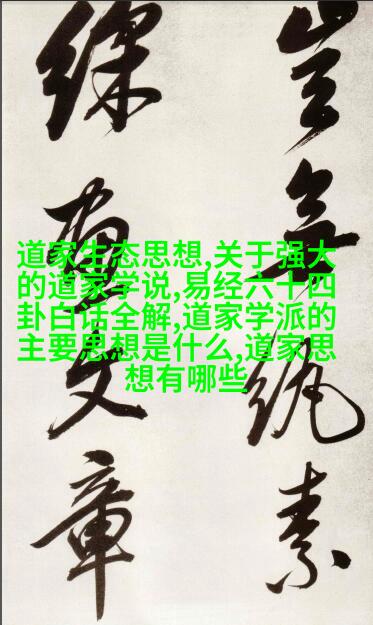 豈無紈素
綵畫文章
道家生态思想,关于强大
的道家学说,易经六十四
卦白话全解,道家学派的
主要思想是什么,道家思
想有哪些